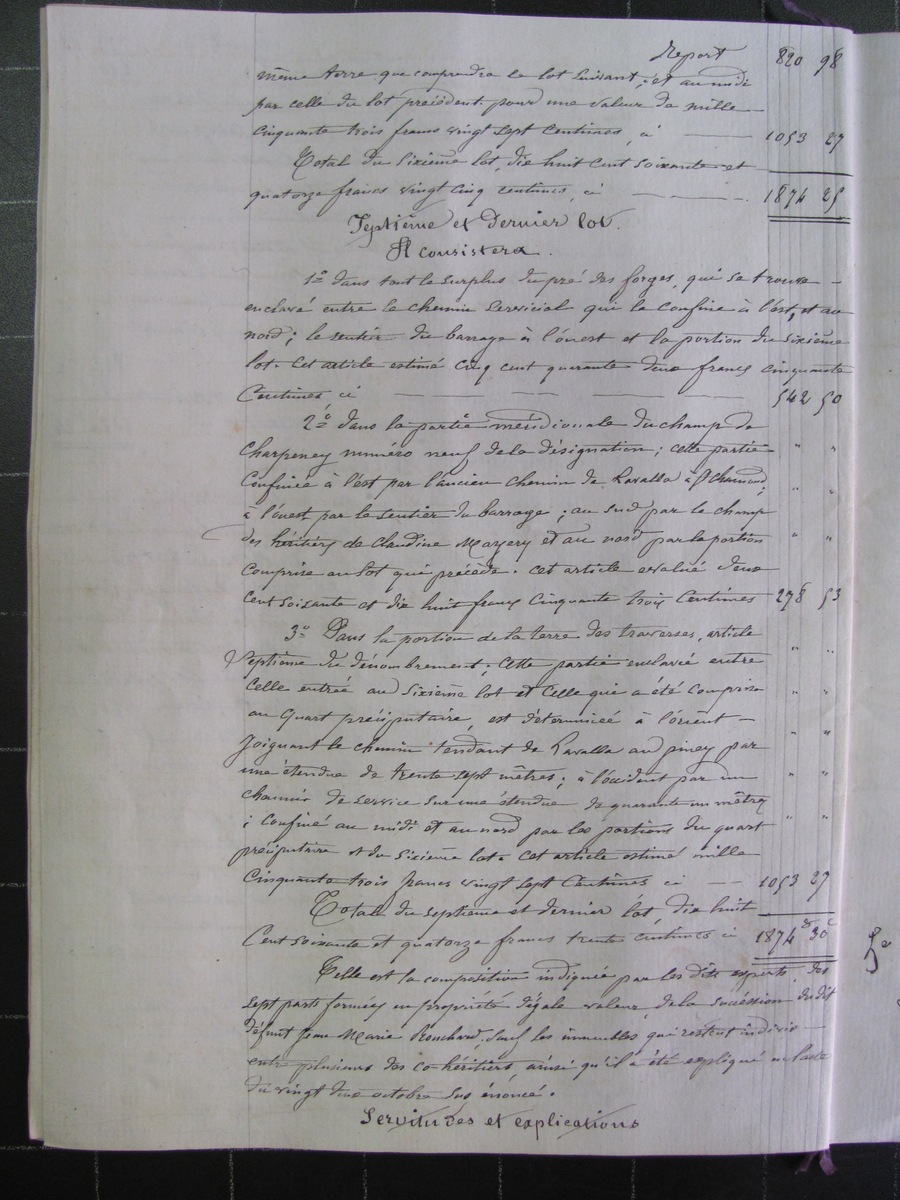 Report 820 98
même terre que comprendra le lot suivant ; et au midi
par celle du lot précédent. pour une valeur de mille
cinquante trois francs vingt sept centimes, ci 1053 27
Total du sixième lot, dix huit cent soixante et
quatorze francs vingt cinq centimes, ci 1874 25
Septième et Dernier lot.
Il consistera.
1º dans tout le surplus du pré des forges, qui se trouve
enclavé entre le chemin servicial qui le confine à l'est, et au
nord ; le sentier du barrage à l'ouest et la portion du sixième
lot. Cet article estimé cinq cent quarante deux francs cinquante
Centimes ci 542 50
2º dans la partie méridionale du champ de
Charpeney numéro neuf de la désignation ; cette partie " "
Confinée à l'est par l'ancien chemin de Lavalla à St Chamond ; " "
à l'ouest par le sentier du barrage ; au sud par le champ
des héritiers de Claudine Mazery et au nord par la portion " "
comprise au lot qui précède. cet article évalué deux
cent soixante et dix huit francs cinquante trois centimes 278 53
3º Dans la portion de la terre des traverses, article
septième du dénombrement ; cette partie enclavée entre " "
celle entrée au sixième lot et celle qui a été comprise " "
au quart préciputaire, est déterminée à l'orient
joignant le chemin tendant de Lavalla au piney par " "
une étendue de trente sept mètres ; à l'occident par un " "
chemin de service sur une étendue de quarante un mètres
; confiné au midi et au nord par les portions du quart " "
préciputaire et du sixième lot. Cet article estimé mille
cinquante trois francs vingt sept Centimes ci 1053 27
Total du septième et dernier lot, dix huit
Cent soixante et quatorze francs trente centimes ci 1874 30
Telle est la composition indiquée par les dits experts, des
sept parts formées en propriété d'égale valeur, de la succession du dit
défunt Jean Marie Ronchard, sauf les immeubles qui restent indivis
entre plusieurs des co-héritiers, ainsi qu'il a été expliqué en l'acte
du vingt deux octobre sus énoncé.
Servitudes et explications